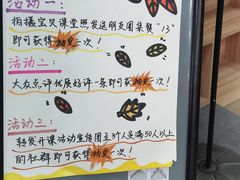 活动一：
拍摄宝贝课堂照发送朋友圈集赞"13"
即可获得抽奖一次！
活动二：
大众点评优质好评一条即可获抽奖一次！
活动三：
转发开课活动宣传图至3个人员满50人以上
的社群即可获得抽奖一次！